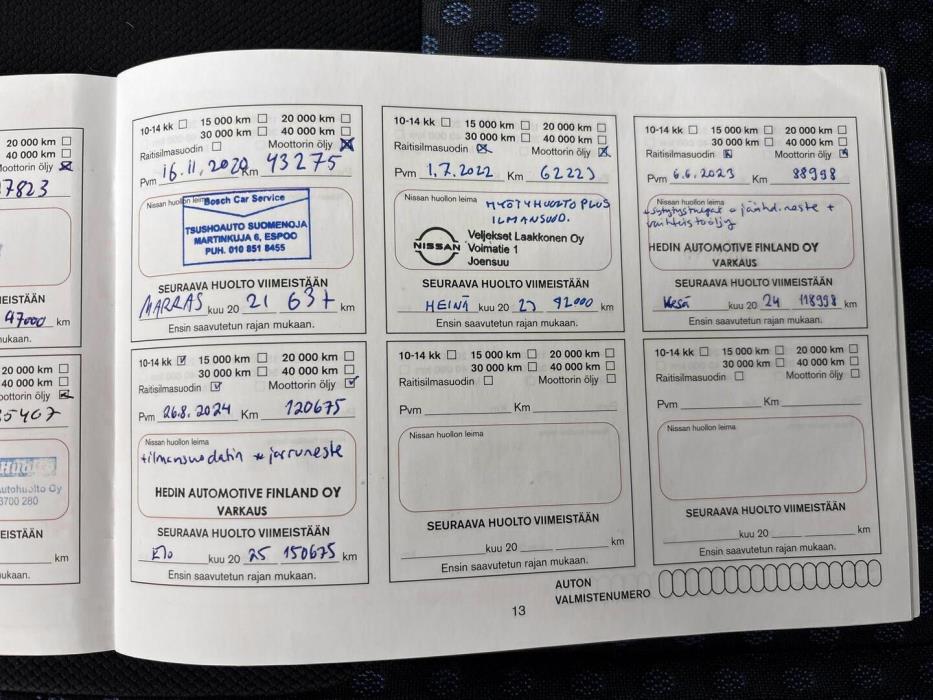 20 000 km
40 000 km
Moottorin öljy
7823
EISTÄÄN
97000 km
ukaan.
20 000 km
40 000 km
oottorin öljy
5407
HUOLTO
utohuolto Oy
3700 280
EISTÄÄN
km
ukaan.
10-14 kk 15 000 km 20 000 km
30 000 km 40 000 km
Raitisilmasuodin Moottorin öljy
Pvm 16.11.2020 Km 43275
Nissan huollon leima
Bosch Car Service
TSUSHOAUTO SUOMENOJA
MARTINKUJA 6, ESPOO
PUH. 010 851 8455
SEURAAVA HUOLTO VIIMEISTÄÄN
MARRAS kuu 20 21 63t km
Ensin saavutetun rajan mukaan.
10-14 kk 15 000 km 20 000 km
30 000 km 40 000 km
Raitisilmasuodin Moottorin öljy
Pvm 1.7.2022 Km 62223
Nissan huollon leima
MYÖTÄHUOLTO PLUS
ILMANSUOD.
NISSAN
Veljekset Laakkonen Oy
Voimatie 1
Joensuu
SEURAAVA HUOLTO VIIMEISTÄÄN
HEINÄ kuu 20 23 92000 km
Ensin saavutetun rajan mukaan.
10-14 kk 15 000 km 20 000 km
30 000 km 40 000 km
Raitisilmasuodin Moottorin öljy
Pvm 6.6.2023 Km 88998
Nissan huollon leima
+sytytystulpat + jäähd.neste +
vaihteistoöljy
HEDIN AUTOMOTIVE FINLAND OY
VARKAUS
SEURAAVA HUOLTO VIIMEISTÄÄN
Kesä kuu 20 24 118998 km
Ensin saavutetun rajan mukaan.
10-14 kk 15 000 km 20 000 km
30 000 km 40 000 km
Raitisilmasuodin Moottorin öljy
Pvm 26.8.2024 Km 120675
Nissan huollon leima
+ilmansuodatin + jarruneste
HEDIN AUTOMOTIVE FINLAND OY
VARKAUS
SEURAAVA HUOLTO VIIMEISTÄÄN
Elo kuu 20 25 150675 km
Ensin saavutetun rajan mukaan.
10-14 kk 15 000 km 20 000 km
30 000 km 40 000 km
Raitisilmasuodin Moottorin öljy
Pvm Km
Nissan huollon leima
SEURAAVA HUOLTO VIIMEISTÄÄN
kuu 20 km
Ensin saavutetun rajan mukaan.
10-14 kk 15 000 km 20 000 km
30 000 km 40 000 km
Raitisilmasuodin Moottorin öljy
Pvm Km
Nissan huollon leima
SEURAAVA HUOLTO VIIMEISTÄÄN
kuu 20 km
Ensin saavutetun rajan mukaan.
AUTON
VALMISTENUMERO
13